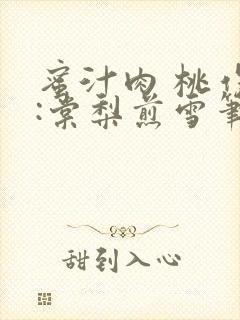 蜜汁肉桃
:棠梨煎雪
甜到入心